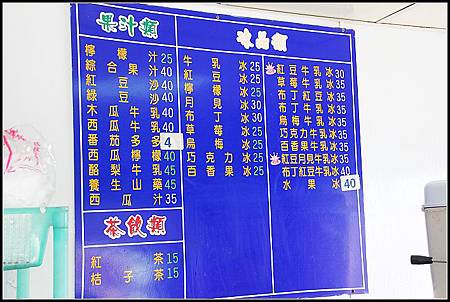 果汁類
檸檬汁25
綜合果汁40
紅豆沙40
綠豆沙40
木瓜牛乳40
西瓜牛乳40
番茄多多4
西瓜檸檬40
酪梨牛乳45
養生山藥45
西瓜汁35
茶飲類
紅茶15
桔子茶15
冰品類
牛乳冰25
紅豆冰25
檸檬冰25
月見冰30
布丁冰30
草莓冰25
烏梅冰25
巧克力冰25
百香果冰25
紅豆牛乳冰30
草莓牛乳冰35
布丁紅豆冰35
布丁牛乳冰35
烏梅牛乳冰35
巧克力牛乳冰35
百香果牛乳冰35
紅豆月見牛乳冰35
布丁紅豆牛乳冰35
水果冰40